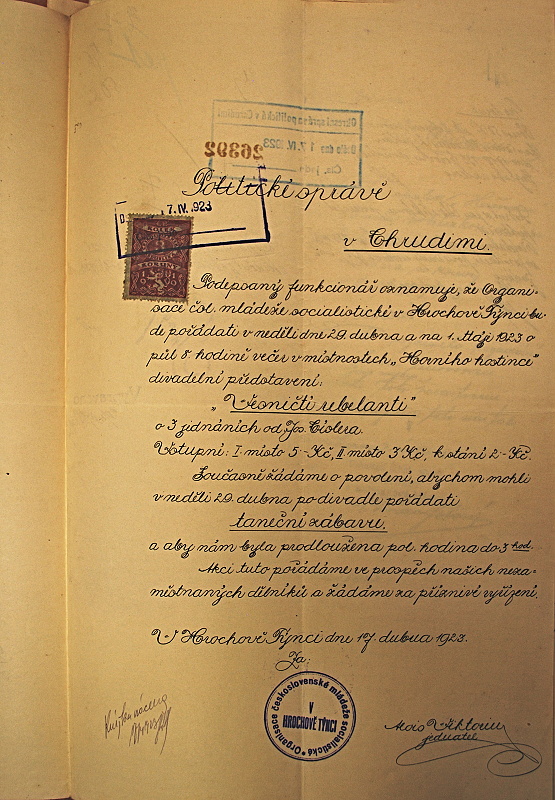 Okresní správa politická v Chrudimi
Došlo dne 17. IV. 1923
26392
Politické správě
7. IV. 1923
KOLEK
KORUNY
v Chrudimi.
Podepsaný funkcionář oznamuje, že Organi-
sace čsl. mládeže socialistické v Hrochově Týnci bu-
de pořádati v neděli dne 29. dubna a na 1. Máje 1923 o
půl 8. hodině večer v místnostech „Horního hostince"
divadelní představení:
„Vesničtí rebelanti"
o 3 jednáních od Jos. Ciolera.
Vstupní: I. místo 5·- Kč, II. místo 3 Kč, k stání 2·- Kč.
Současně žádáme o povolení, abychom mohli
v neděli 29. dubna po divadle pořádati
taneční zábavu.
a aby nám byla prodloužena pol. hodina do 3 hod.
Akci tuto pořádáme ve prospěch našich neza-
městnaných dělníků a žádáme za příznivé vyřízení.
V Hrochově Týnci dne 17. dubna 1923.
Za:
Organisace československé mládeže socialistické
V
HROCHOVĚ TÝNCI
Alois Viktorin
jednatel